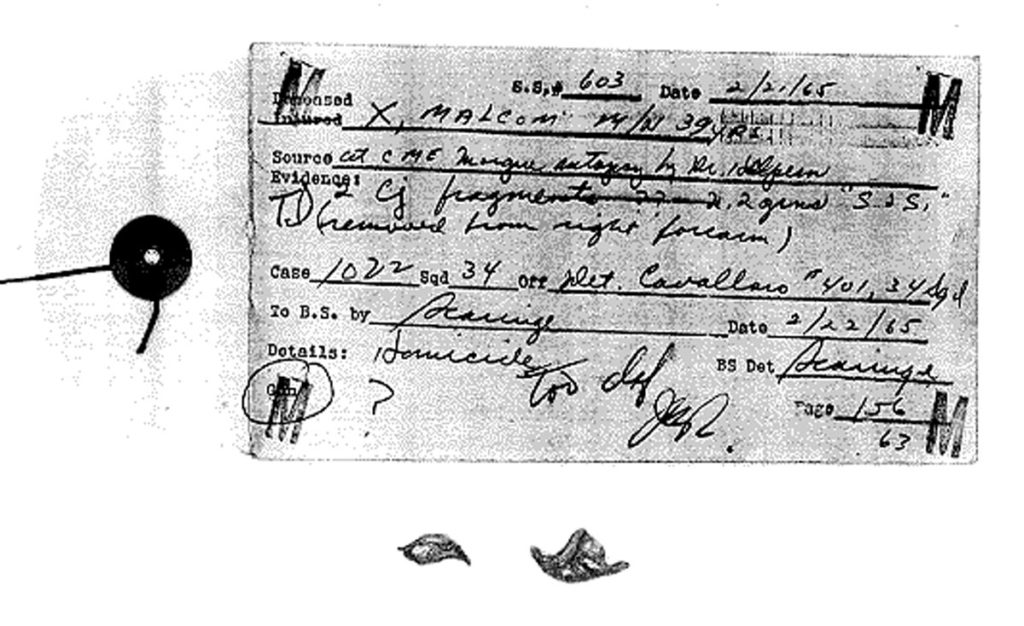 S.S.# 603 Date 2/21/65
Deceased
Injured X, MALCOM M/N 39 YRS
Source at CME Morgue autopsy by Dr. Helpern
Evidence: 2 Cj fragments 2.2 gms "S & S."
TD (removed from right forearm)
Case 1022 Sqd 34 Off Det. Cavallaro #401, 34 Sqd
To B.S. by Scaringe Date 2/22/65
Details: Homicide BS Det Scaringe
Too def
Gun ? Page 156
63